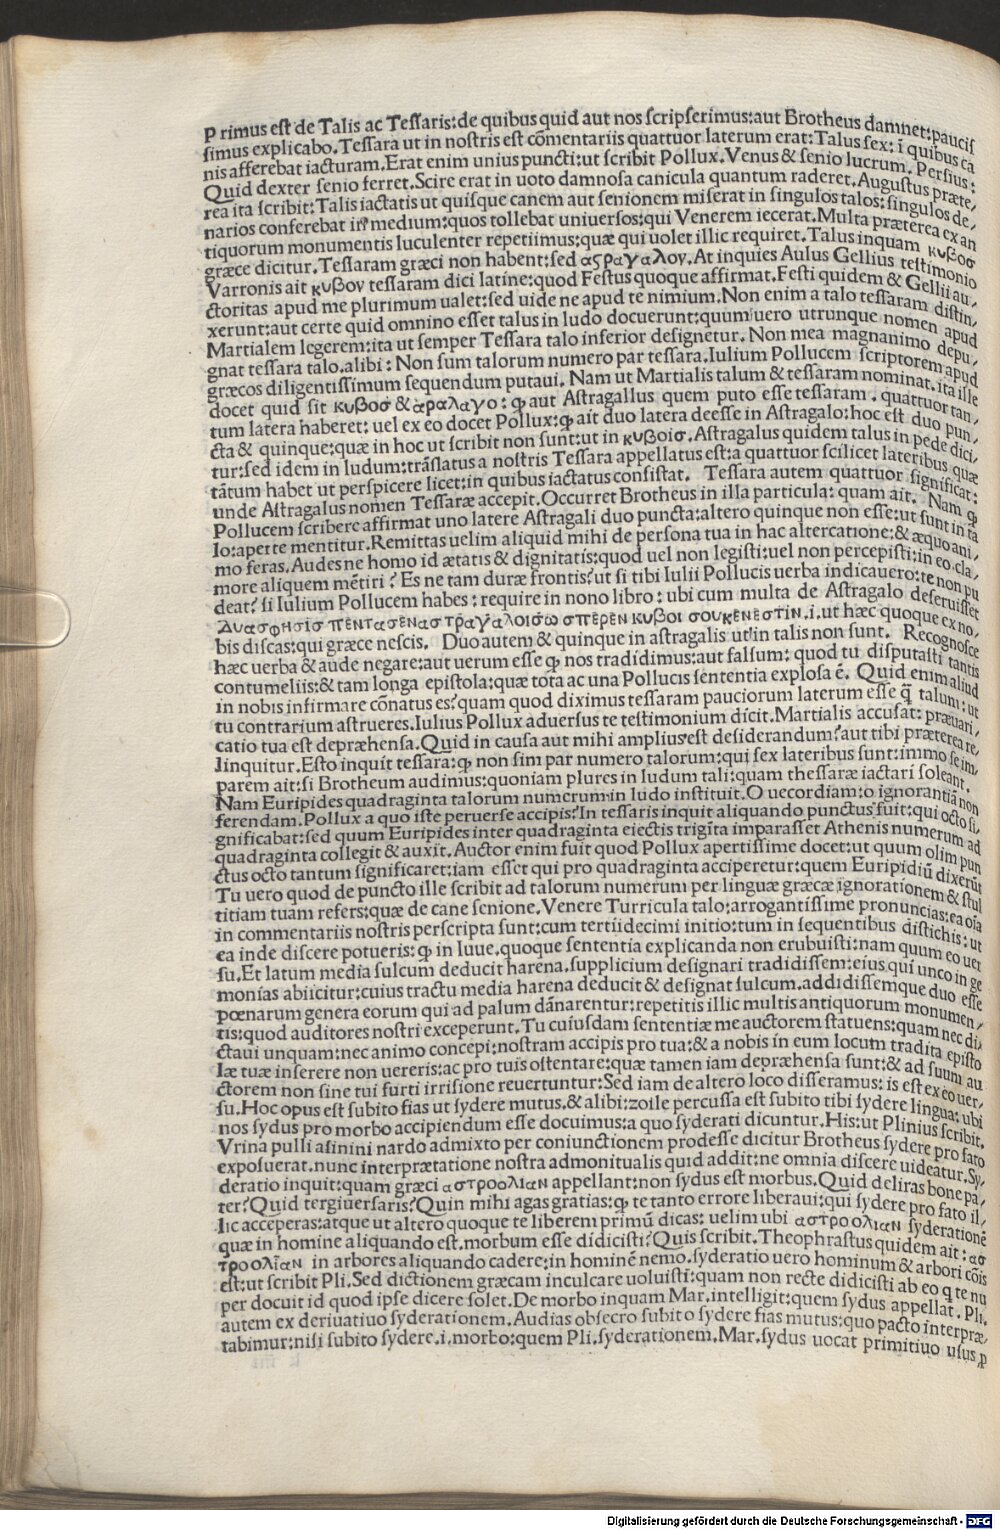 Primus est de Talis ac Tessaris:de quibus quid aut nos scripserimus:aut Brotheus damnet:paucis
simus explicabo.Tessara ut in nostris est cōmentariis quattuor laterum erat:Talus sex: ī quibus ca
nis afferebat iacturam.Erat enim unius puncti:ut scribit Pollux.Venus & senio lucrum. Persius:
Quid dexter senio ferret.Scire erat in uoto damnosa canicula quantum raderet.Augustus præte,
rea ita scribit:Talis iactatis ut quisque canem aut senionem miserat in singulos talos: singulos de,
narios conferebat in medium:quos tollebat uniuersos:qui Venerem iecerat.Multa præterea ex an
tiquorum monumentis luculenter repetiimus:quæ qui uolet illic requiret.Talus inquam κυβοσ
græce dicitur.Tessaram græci non habent:sed αςραγαλον.At inquies Aulus Gellius testimonio
Varronis ait κυβον tessaram dici latine:quod Festus quoque affirmat.Festi quidem & Gellii au,
ctoritas apud me plurimum ualet:sed uide ne apud te nimium.Non enim a talo tessaram distin,
xerunt:aut certe quid omnino esset talus in ludo docuerunt:quum uero utrunque nomen apud
Martialem legerem:ita ut semper Tessara talo inferior designetur. Non mea magnanimo depu,
gnat tessara talo.alibi: Non sum talorum numero par tessara.Iulium Pollucem scriptorem apud
græcos diligentissimum sequendum putaui. Nam ut Martialis talum & tessaram nominat.ita ille
docet quid sit κυβοσ & αραλαγο: ꝙ aut Astragallus quem puto esse tessaram . quattuor tan,
tum latera haberet: uel ex eo docet Pollux:ꝙ ait duo latera deesse in Astragalo:hoc est duo pun,
cta & quinque:quæ in hoc ut scribit non sunt:ut in κυβοισ.Astragalus quidem talus in pede dici,
tur:sed idem in ludum:trāslatus a nostris Tessara appellatus est:a quattuor scilicet lateribus quæ
tātum habet ut perspicere licet:in quibus iactatus consistat. Tessara autem quattuor significat:
unde Astragalus nomen Tessaræ accepit.Occurret Brotheus in illa particula: quam ait. Nam ꝙ
Pollucem scribere affirmat uno latere Astragali duo puncta:altero quinque non esse:ut sunt in ta
lo:aperte mentitur.Remittas uelim aliquid mihi de persona tua in hac altercatione:& æquo ani,
mo feras.Audes ne homo id ætatis & dignitatis:quod uel non legisti:uel non percepisti:in eo cla,
more aliquem mētiri ? Es ne tam duræ frontis?ut si tibi Iulii Pollucis uerba indicauero:te non pu
deat? si Iulium Pollucem habes: require in nono libro: ubi cum multa de Astragalo deseruisset
Δυασφησισ πενταςεναστραγαλοισω σπερεν κυβοι σουκενεστιν.i.ut hæc quoque ex no,
bis discas:qui græce nescis. Duo autem & quinque in astragalis ut in talis non sunt. Recognosce
hæc uerba & aude negare:aut uerum esse ꝙ nos tradidimus:aut falsum: quod tu disputasti tantis
contumeliis:& tam longa epistola:quæ tota ac una Pollucis sententia explosa ē. Quid enim aliud
in nobis infirmare cōnatus es?quam quod diximus tessaram pauciorum laterum esse q̄ talum:ut
tu contrarium astrueres.Iulius Pollux aduersus te testimonium dicit.Martialis accusat: præuari,
catio tua est depræhensa.Quid in causa aut mihi amplius est desiderandum?aut tibi præterea re,
linquitur.Esto inquit tessara:ꝙ non sim par numero talorum:qui sex lateribus sunt:immo se im,
parem ait:si Brotheum audimus:quoniam plures in ludum tali:quam thessaræ iactari soleant.
Nam Euripides quadraginta talorum numerum in ludo instituit.O uecordiam:o ignorantiā non
ferendam.Pollux a quo iste peruerse accipis?In tessaris inquit aliquando punctus fuit:qui octo si,
gnificabat:sed quum Euripides inter quadraginta eiectis trigīta imparasset Athenis numerum ad
quadraginta collegit & auxit.Auctor enim fuit quod Pollux apertissime docet:ut quum olim pun
ctus octo tantum significaret:iam esset qui pro quadraginta acciperetur:quem Euripidiū dixerūt
Tu uero quod de puncto ille scribit ad talorum numerum per linguæ græcæ ignorationem & stul
titiam tuam refers:quæ de cane senione.Venere Turricula talo:arrogantissime pronuncias:ea oīa
in commentariis nostris perscripta sunt:cum tertiidecimi initio:tum in sequentibus distichis: ut
ea inde discere potueris: ꝙ in Iuue.quoque sententia explicanda non erubuisti:nam quum eo uer
su.Et latum media sulcum deducit harena.supplicium designari tradidissem:eius qui unco in ge
monias abiicitur:cuius tractu media harena deducit & designat sulcum.addidissemque duo esse
pœnarum genera eorum qui ad palum dānarentur:repetitis illic multis antiquorum monumen,
tis:quod auditores nostri exceperunt.Tu cuiusdam sententiæ me auctorem statuens:quam nec di,
ctaui unquam:nec animo concepi:nostram accipis pro tua:& a nobis in eum locum tradita episto
læ tuæ inserere non uereris:ac pro tuis ostentare:quæ tamen iam depræhensa sunt:& ad suum au
ctorem non sine tui furti irrisione reuertuntur:Sed iam de altero loco disseramus: is est ex eo uer,
su.Hoc opus est subito fias ut sydere mutus.& alibi:zoile percussa est subito tibi sydere lingua: ubi
nos sydus pro morbo accipiendum esse docuimus:a quo syderati dicuntur.His:ut Plinius scribit.
Vrina pulli asinini nardo admixto per coniunctionem prodesse dicitur Brotheus sydere pro fato
exposuerat.nunc interprætatione nostra admonitualis quid addit:ne omnia discere uideatur.Sy,
deratio inquit:quam græci αστροολιαν appellant:non sydus est morbus.Quid deliras bone pa,
ter?Quid tergiuersaris?Quin mihi agas gratias: ꝙ te tanto errore liberaui:qui sydere pro fato il,
lic acceperas:atque ut altero quoque te liberem primū dicas: uelim ubi αστροολιαν syderationē
quæ in homine aliquando est.morbum esse didicisti?Quis scribit.Theophrastus quidem ait: ασ
τροολῖαν in arbores aliquando cadere:in hominē nemo.syderatio uero hominum & arbori cōis
est:ut scribit Pli.Sed dictionem græcam inculcare uoluisti:quam non recte didicisti ab eo q te nu
per docuit id quod ipse dicere solet.De morbo inquam Mar.intelligit:quem sydus appellat. Pli.
autem ex deriuatiuo syderationem.Audias obsecro subito sydere fias mutus:quo pacto interpræ,
tabimur:nisi subito sydere.i.morbo:quem Pli.syderationem.Mar.sydus uocat primitiuo usus ꝑ
Digitalisierung gefördert durch die Deutsche Forschungsgemeinschaft - DFG